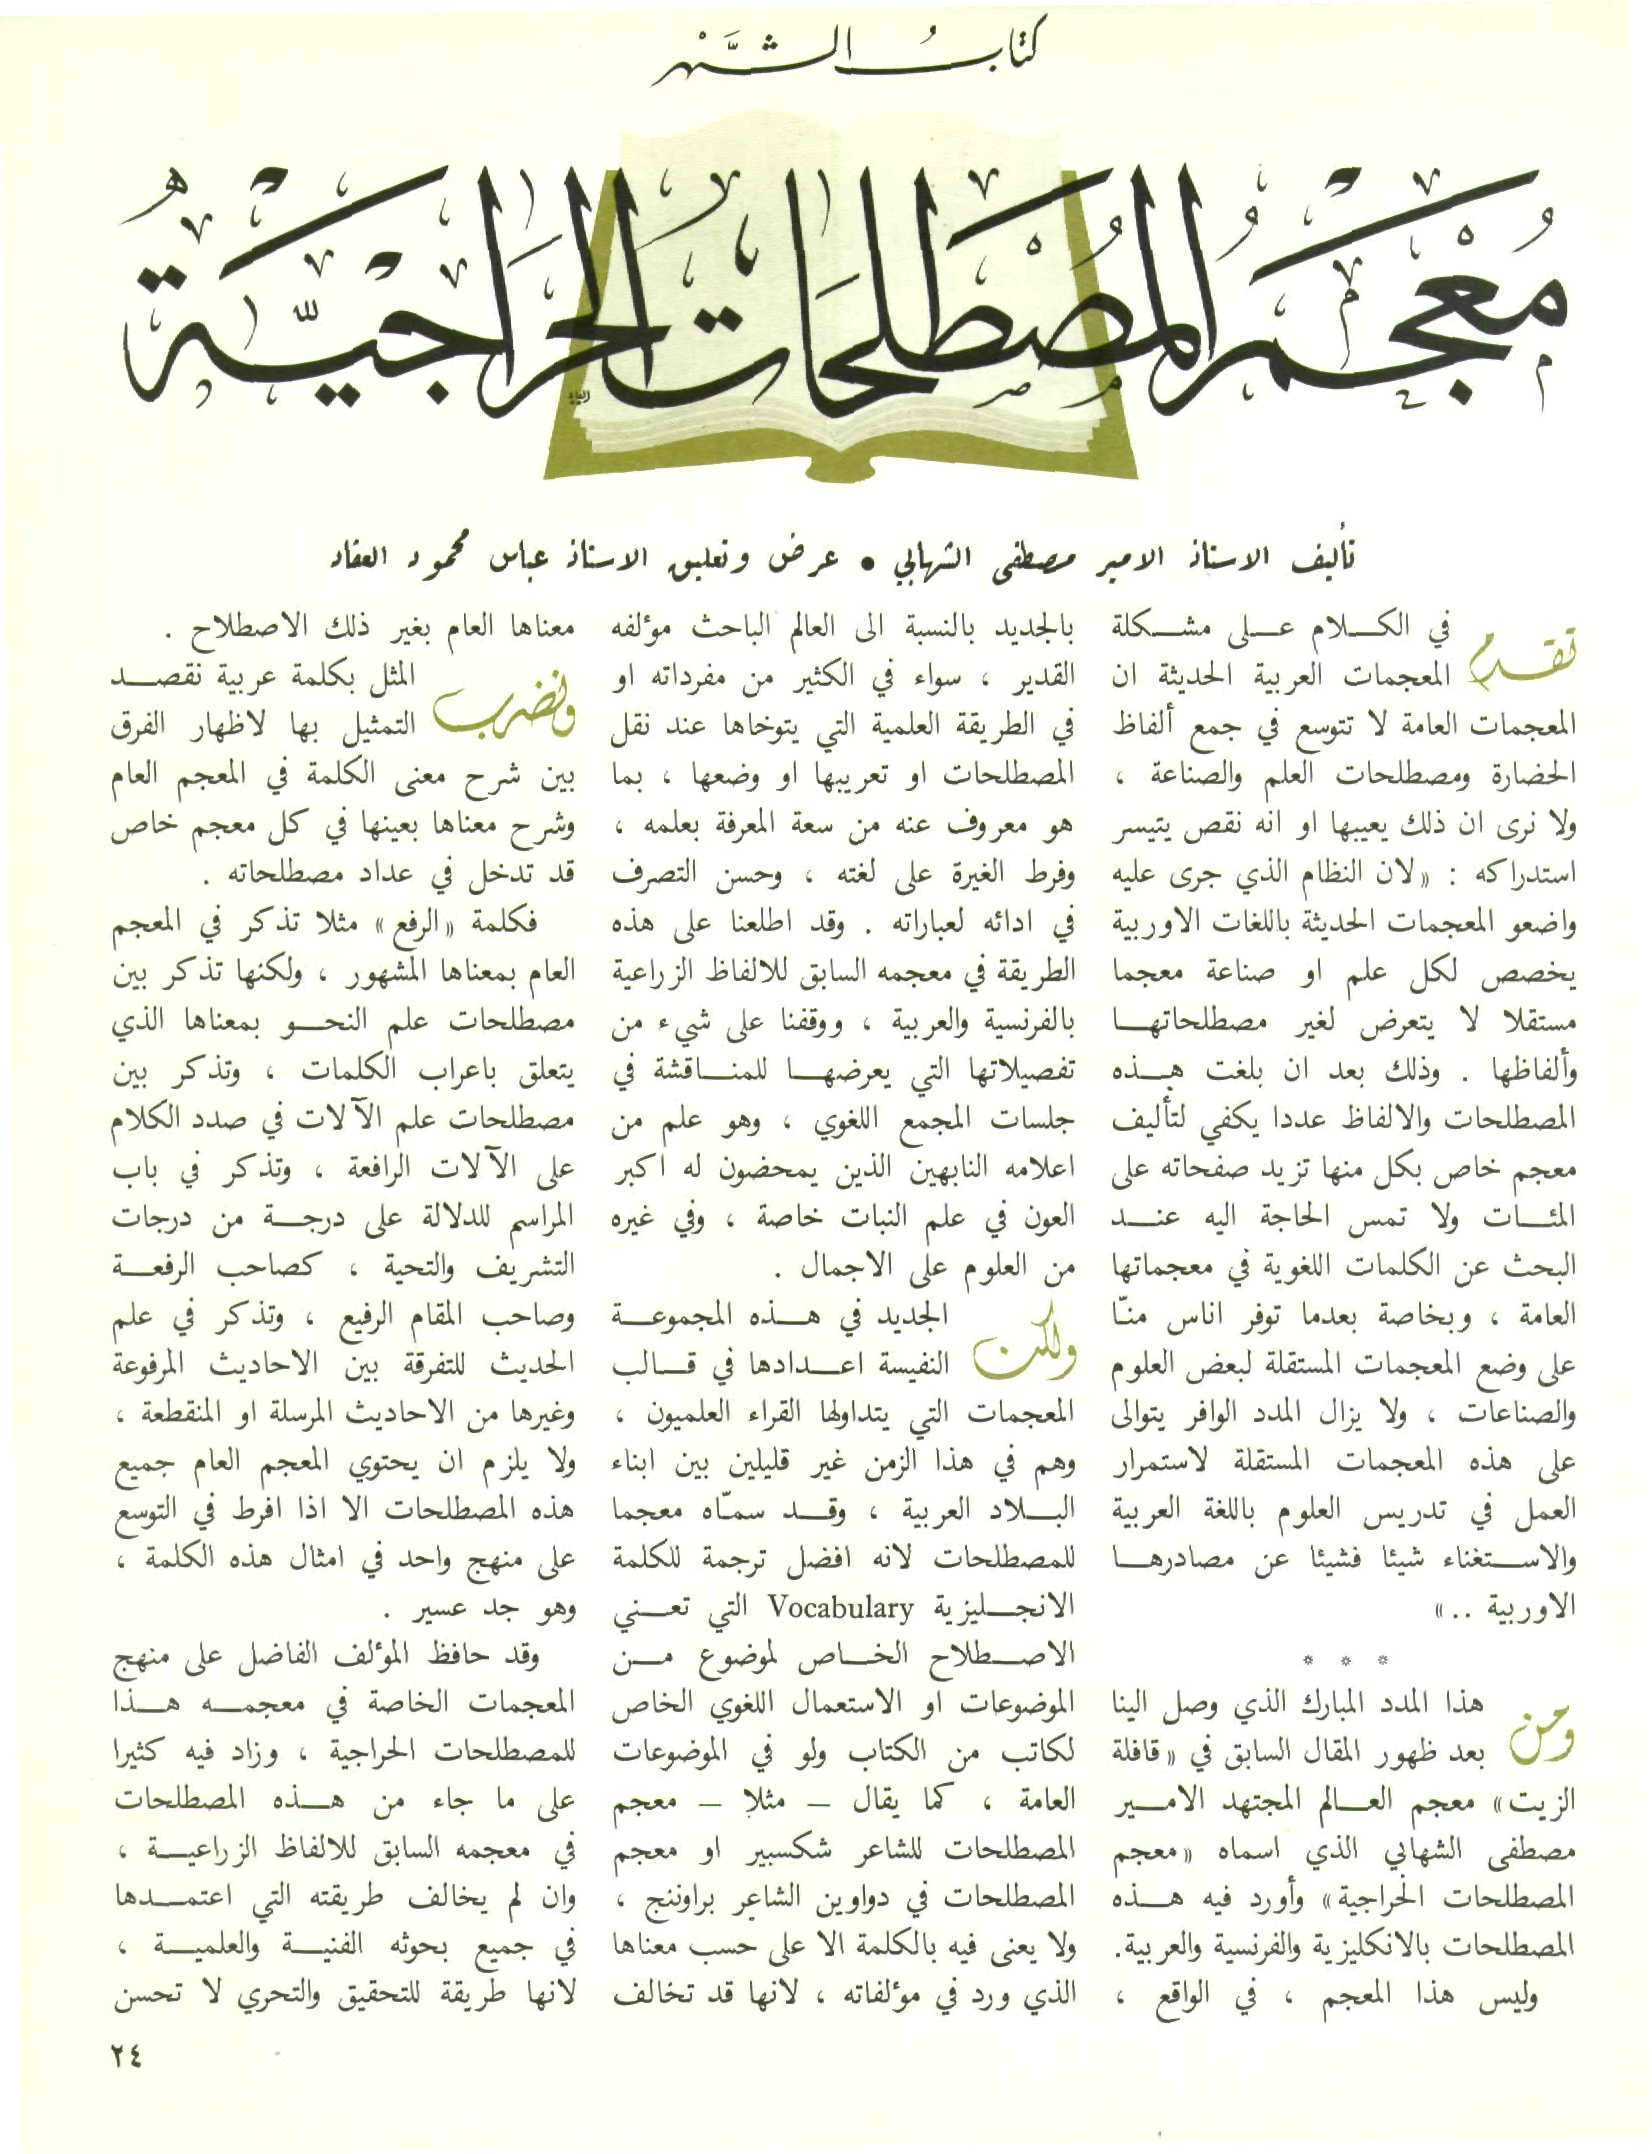 كتابُ الشَّهْر
مُعْجَم المُصْطَلَحَات الحَرَاجِيَّة
تأليف الاستاذ الامير مصطفى الشهابي • عرض وتعليق الاستاذ عباس محمود العقاد
تقدم في الكلام على مشكلة
المعجمات العربية الحديثة ان
المعجمات العامة لا تتوسع في جمع ألفاظ
الحضارة ومصطلحات العلم والصناعة ،
ولا نرى ان ذلك يعيبها او انه نقص يتيسر
استدراكه : «لان النظام الذي جرى عليه
واضعو المعجمات الحديثة باللغات الاوربية
يخصص لكل علم او صناعة معجما
مستقلا لا يتعرض لغير مصطلحاتها
وألفاظها . وذلك بعد ان بلغت هذه
المصطلحات والالفاظ عددا يكفي لتأليف
معجم خاص بكل منها تزيد صفحاته على
المئات ولا تمس الحاجة اليه عند
البحث عن الكلمات اللغوية في معجماتها
العامة ، وبخاصة بعدما توفر اناس منّا
على وضع المعجمات المستقلة لبعض العلوم
والصناعات ، ولا يزال المدد الوافر يتوالى
على هذه المعجمات المستقلة لاستمرار
العمل في تدريس العلوم باللغة العربية
والاستغناء شيئا فشيئا عن مصادرها
الاوربية ..»
* * *
ومن هذا المدد المبارك الذي وصل الينا
بعد ظهور المقال السابق في «قافلة
الزيت» معجم العالم المجتهد الامير
مصطفى الشهابي الذي اسماه «معجم
المصطلحات الحراجية» وأورد فيه هذه
المصطلحات بالانكليزية والفرنسية والعربية.
وليس هذا المعجم ، في الواقع ،
بالجديد بالنسبة الى العالم الباحث مؤلفه
القدير ، سواء في الكثير من مفرداته او
في الطريقة العلمية التي يتوخاها عند نقل
المصطلحات او تعريبها او وضعها ، بما
هو معروف عنه من سعة المعرفة بعلمه ،
وفرط الغيرة على لغته ، وحسن التصرف
في ادائه لعباراته . وقد اطلعنا على هذه
الطريقة في معجمه السابق للالفاظ الزراعية
بالفرنسية والعربية ، ووقفنا على شيء من
تفصيلاتها التي يعرضها للمناقشة في
جلسات المجمع اللغوي ، وهو علم من
اعلامه النابهين الذين يمحضون له اكبر
العون في علم النبات خاصة ، وفي غيره
من العلوم على الاجمال .
ولكن الجديد في هذه المجموعة
النفيسة اعدادها في قالب
المعجمات التي يتداولها القراء العلميون ،
وهم في هذا الزمن غير قليلين بين ابناء
البلاد العربية ، وقد سمّاه معجما
للمصطلحات لانه افضل ترجمة للكلمة
الانجليزية Vocabulary التي تعني
الاصطلاح الخاص لموضوع من
الموضوعات او الاستعمال اللغوي الخاص
لكاتب من الكتاب ولو في الموضوعات
العامة ، كما يقال – مثلا – معجم
المصطلحات للشاعر شكسبير او معجم
المصطلحات في دواوين الشاعر براوننج ،
ولا يعنى فيه بالكلمة الا على حسب معناها
الذي ورد في مؤلفاته ، لانها قد تخالف
معناها العام بغير ذلك الاصطلاح .
ونضرب المثل بكلمة عربية نقصد
التمثيل بها لاظهار الفرق
بين شرح معنى الكلمة في المعجم العام
وشرح معناها بعينها في كل معجم خاص
قد تدخل في عداد مصطلحاته .
فكلمة «الرفع» مثلا تذكر في المعجم
العام بمعناها المشهور ، ولكنها تذكر بين
مصطلحات علم النحو بمعناها الذي
يتعلق باعراب الكلمات ، وتذكر بين
مصطلحات علم الآلات في صدد الكلام
على الآلات الرافعة ، وتذكر في باب
المراسم للدلالة على درجة من درجات
التشريف والتحية ، كصاحب الرفعة
وصاحب المقام الرفيع ، وتذكر في علم
الحديث للتفرقة بين الاحاديث المرفوعة
وغيرها من الاحاديث المرسلة او المنقطعة ،
ولا يلزم ان يحتوي المعجم العام جميع
هذه المصطلحات الا اذا افرط في التوسع
على منهج واحد في امثال هذه الكلمة ،
وهو جد عسير .
وقد حافظ المؤلف الفاضل على منهج
المعجمات الخاصة في معجمه هذا
للمصطلحات الحراجية ، وزاد فيه كثيرا
على ما جاء من هذه المصطلحات
في معجمه السابق للالفاظ الزراعية ،
وان لم يخالف طريقته التي اعتمدها
في جميع بحوثه الفنية والعلمية ،
لانها طريقة للتحقيق والتحري لا تحسن
٢٤